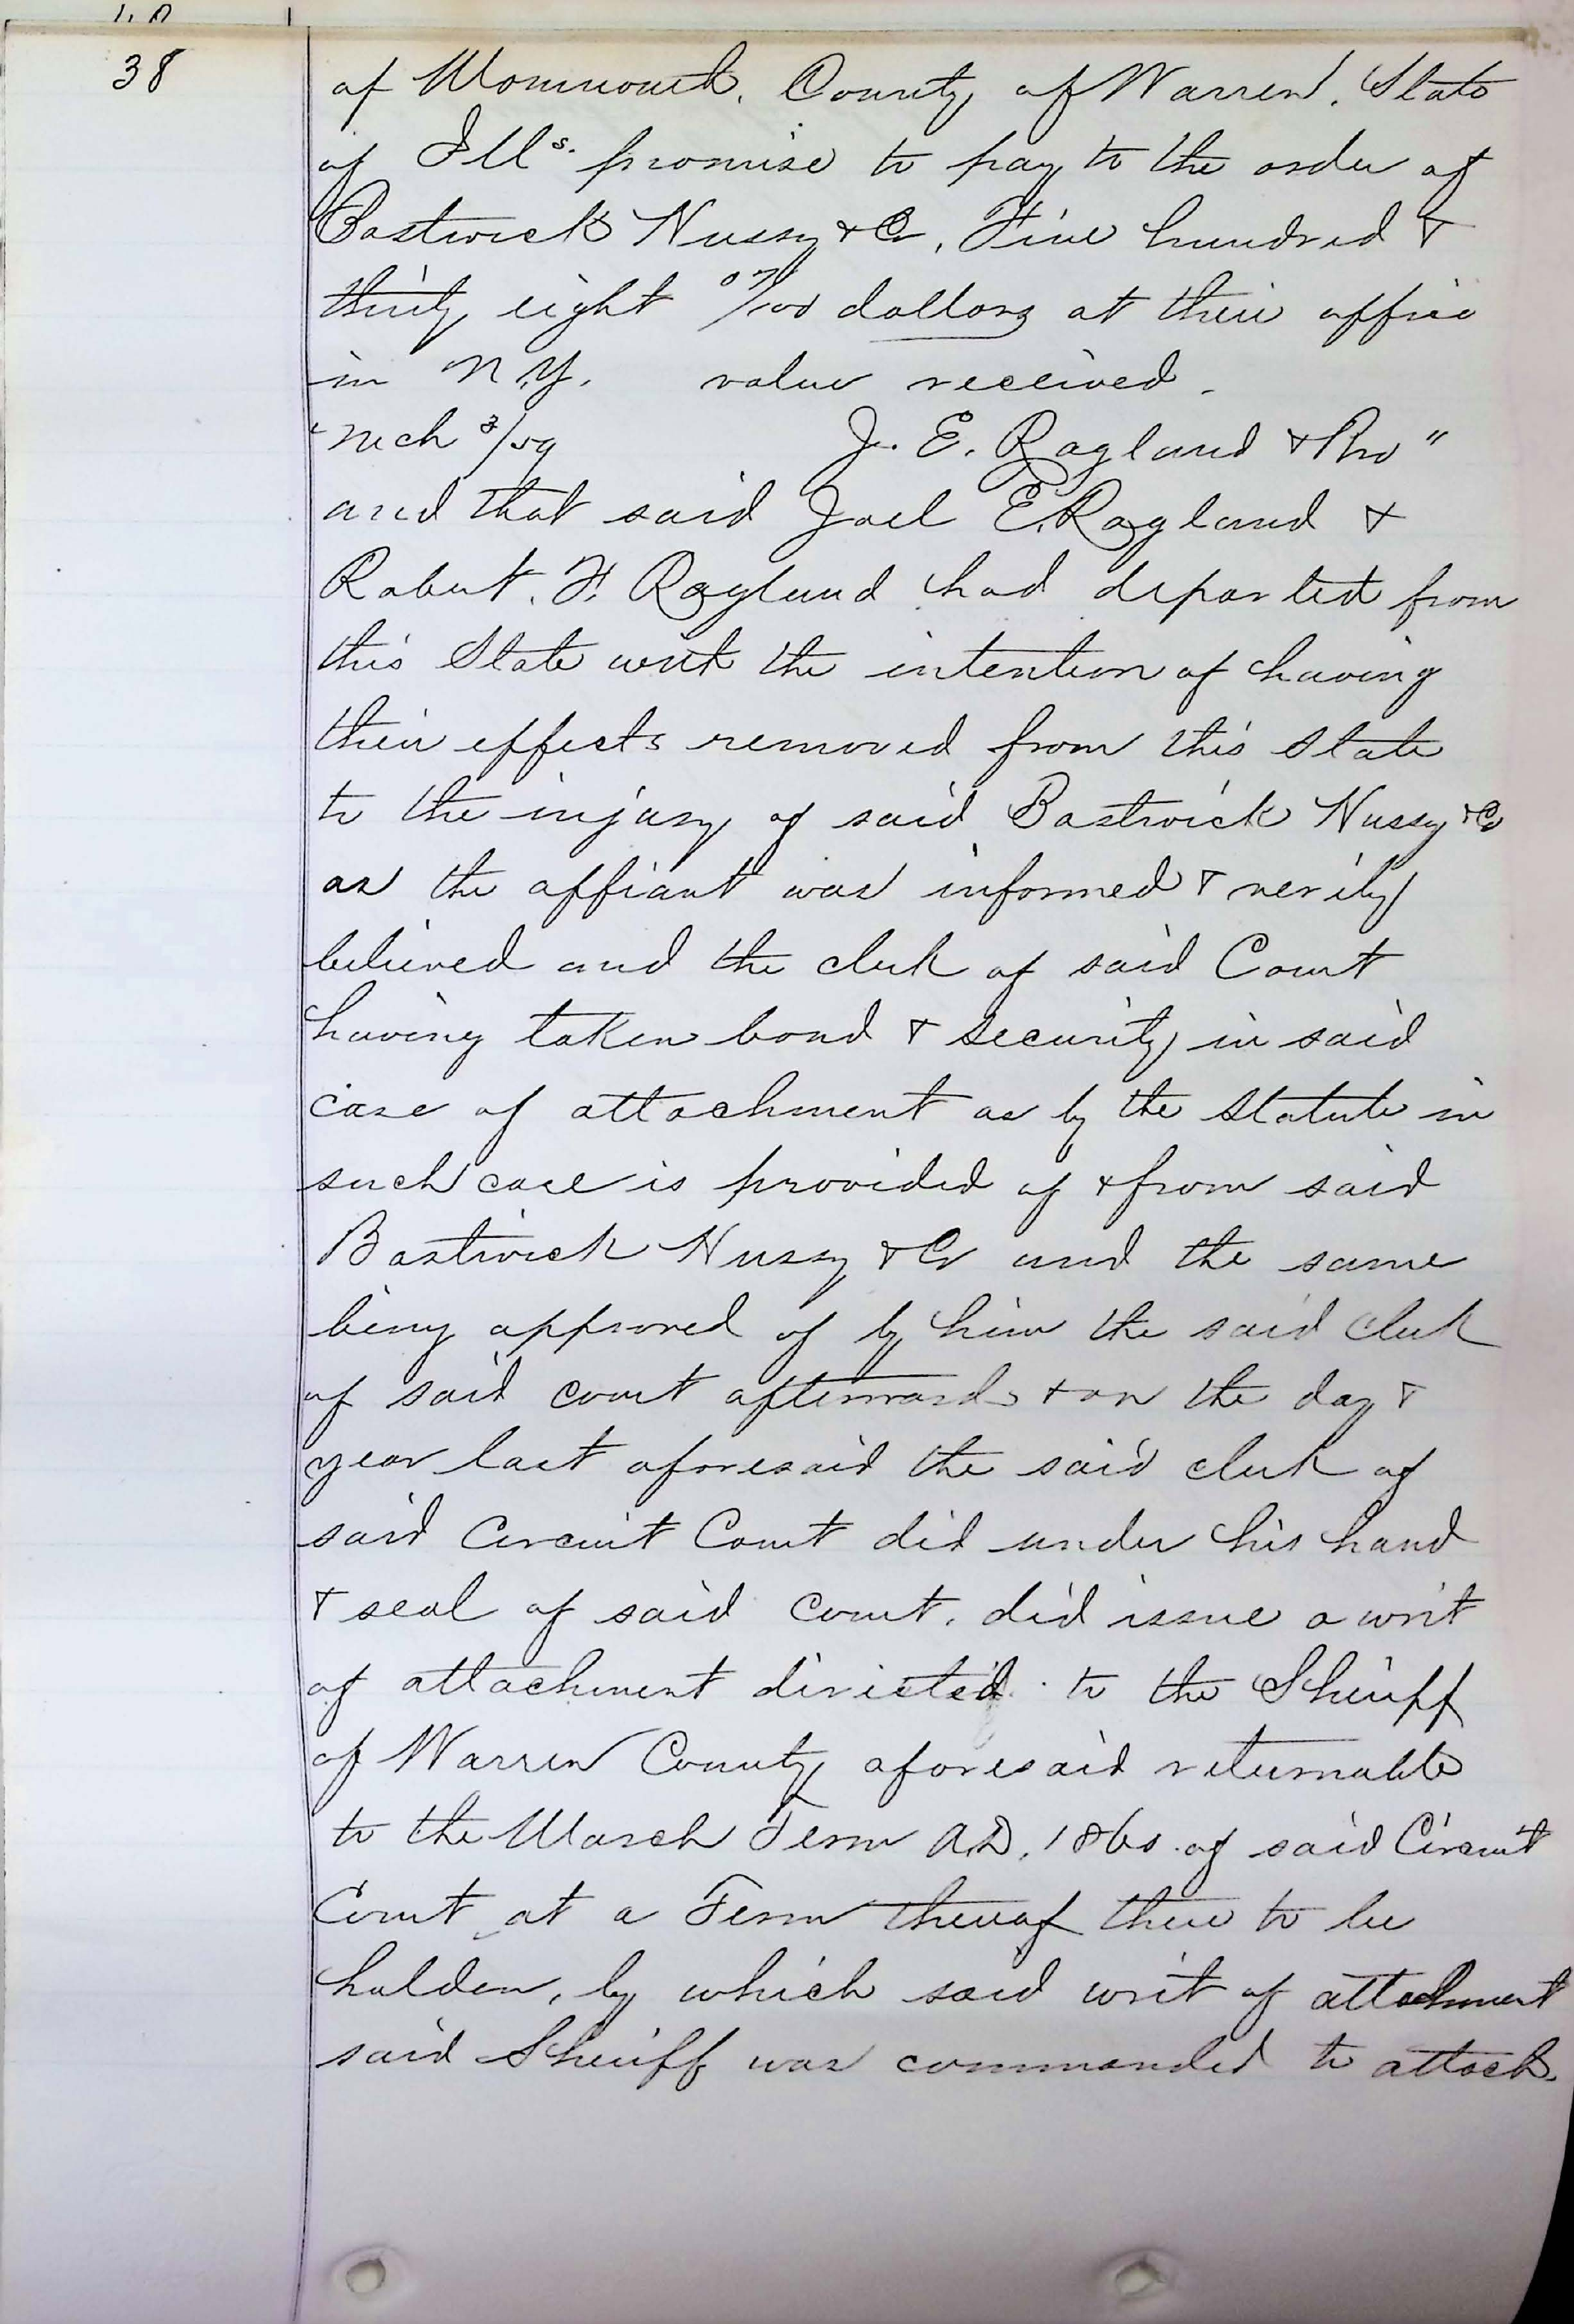 38
of Monmouth, County of Warren, State
of Ills. promise to pay to the order of
Bostwick Hussy & Co, Five hundred &
thirty eight 07/100 dollars at their office
in N.Y. value received.
"Mch 3/59 J. E. Ragland & Bro"
and that said Joel E. Ragland &
Robert. F. Ragland had departed from
this State with the intention of having
their effects removed from this State
to the injury of said Bostwick Hussy & Co
as the affiant was informed & verily
believed and the clerk of said Court
having taken bond & security in said
case of attachment as by the Statute in
such case is provided of & from said
Bostwick Hussy & Co and the same
being approved of by him the said clerk
of said court afterwards & on the day &
year last aforesaid the said clerk of
said Circuit Court did under his hand
& seal of said Court. did issue a writ
of attachment directed to the Sheriff
of Warren County aforesaid returnable
to the March Term A.D. 1860. of said Circuit
Court at a Term thereof there to be
holden, by which said writ of attachment
said Sheriff was commanded to attach.